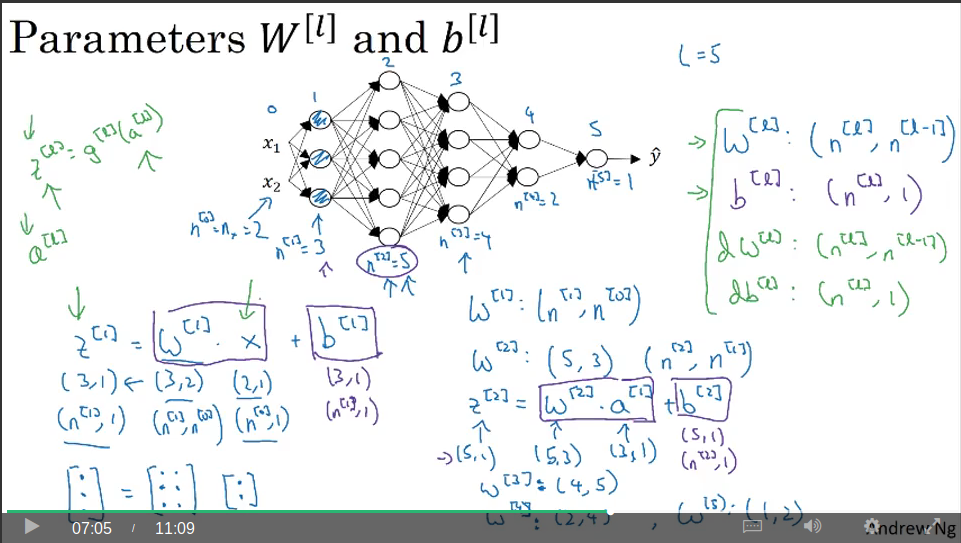 Parameters W^[l] and b^[l]
L = 5
0 1 2 3 4 5
x₁
x₂
ŷ
n^[0] = nₓ = 2
n^[1] = 3
n^[2] = 5
n^[3] = 4
n^[4] = 2
n^[5] = 1
z^[l] = g^[l](a^[l])
a^[l]
→ W^[l] : (n^[l], n^[l-1])
→ b^[l] : (n^[l], 1)
dW^[l] : (n^[l], n^[l-1])
db^[l] : (n^[l], 1)
z^[1] = W^[1] · x + b^[1]
(3,1) ← (3,2) (2,1) (3,1)
(n^[1], 1) (n^[1], n^[0]) (n^[0], 1) (n^[1], 1)
[:] = [: :] [:]
W^[1] : (n^[1], n^[0])
W^[2] : (5, 3) (n^[2], n^[1])
z^[2] = W^[2] · a^[1] + b^[2]
→ (5,1) (5,3) (3,1) (5,1)
(n^[2], 1)
W^[3] : (4, 5)
W^[4] : (2,4) , W^[5] : (1,2)
07:05 / 11:09
Andrew Ng